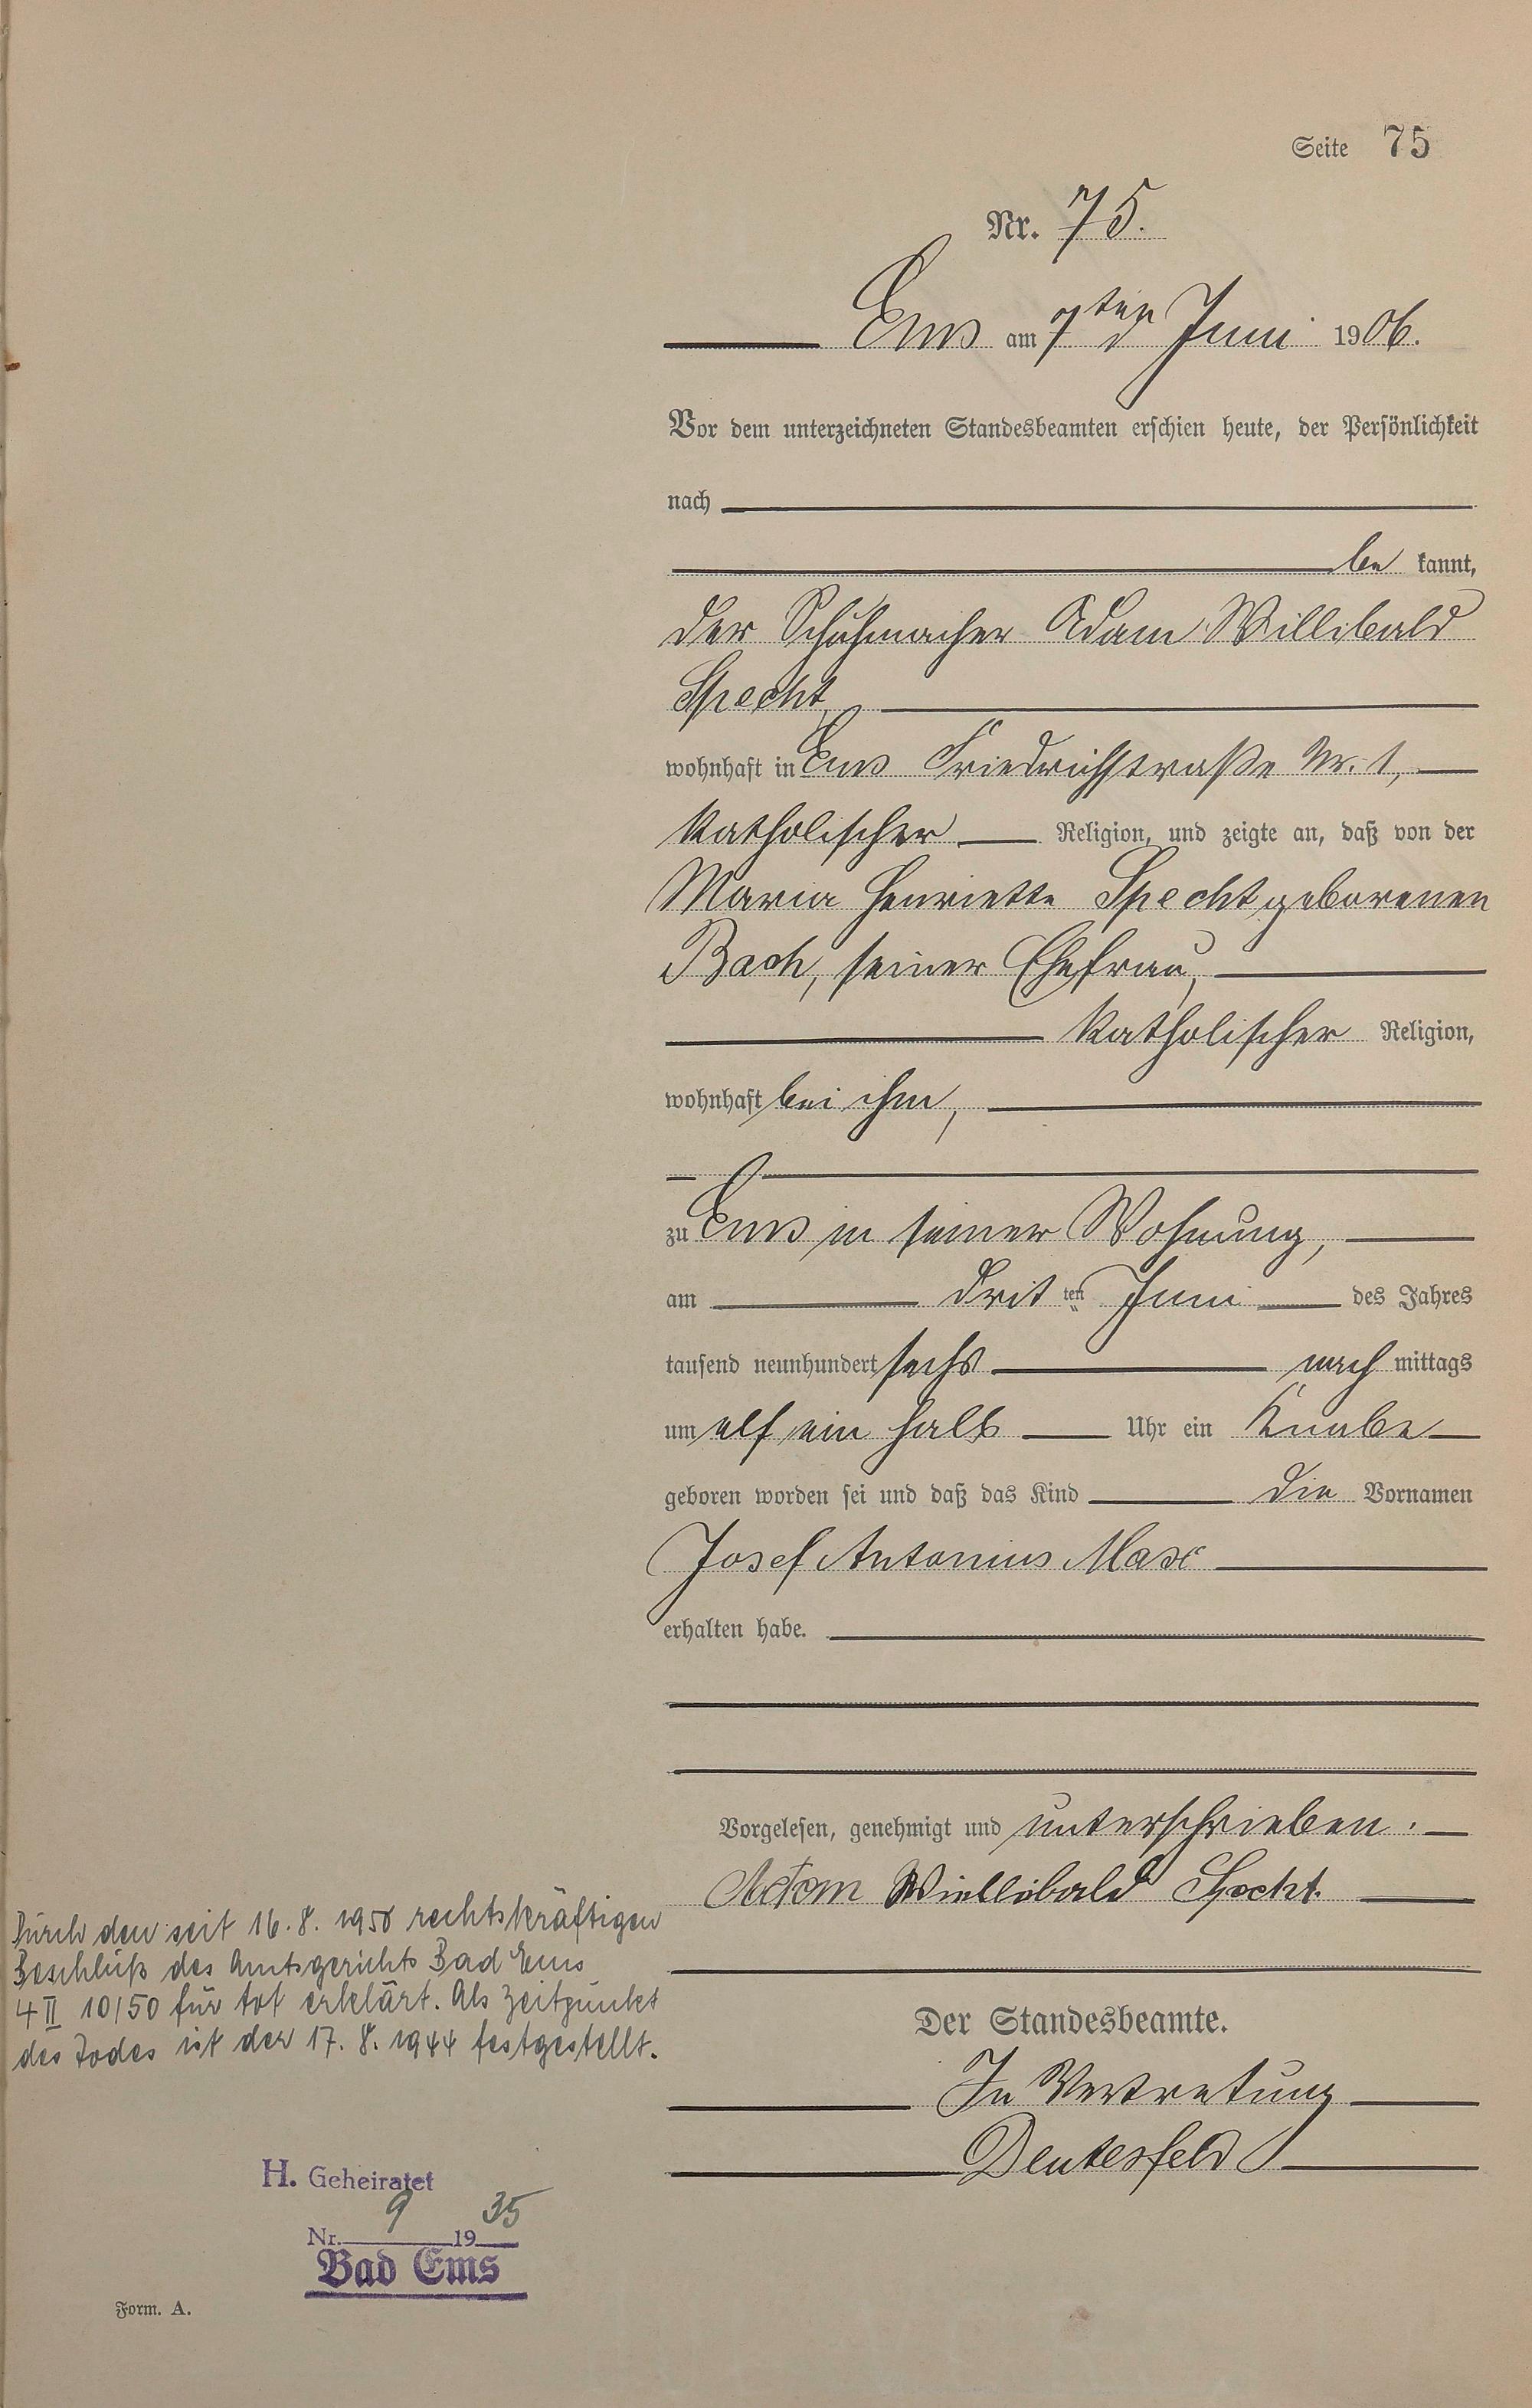 Seite 75
Nr. 75.
Ems am 7ten Juni 1906.
Vor dem unterzeichneten Standesbeamten erschien heute, der Persönlichkeit
nach
be kannt,
der Schuhmacher Adam Willibald
Specht,
wohnhaft in Ems Friedrichstraße Nr. 1,
katholischer Religion, und zeigte an, daß von der
Maria Henriette Specht geborenen
Bach, seiner Ehefrau,
katholischer Religion,
wohnhaft bei ihm,
zu Ems in seiner Wohnung,
am drit ten Juni des Jahres
tausend neunhundert sechs nach mittags
um elf ein halb Uhr ein Knabe
geboren worden sei und daß das Kind die Vornamen
Josef Antonius Max
erhalten habe.
Vorgelesen, genehmigt und unterschrieben.
Adam Willibald Specht.
Der Standesbeamte.
In Vertretung
Deutesfeld
Durch den seit 16. 8. 1950 rechtskräftigen
Beschluß des Amtsgerichts Bad Ems
4 II 10/50 für tot erklärt. Als Zeitpunkt
des Todes ist der 17. 8. 1944 festgestellt.
H. Geheiratet
Nr. 9 1935
Bad Ems
Form. A.